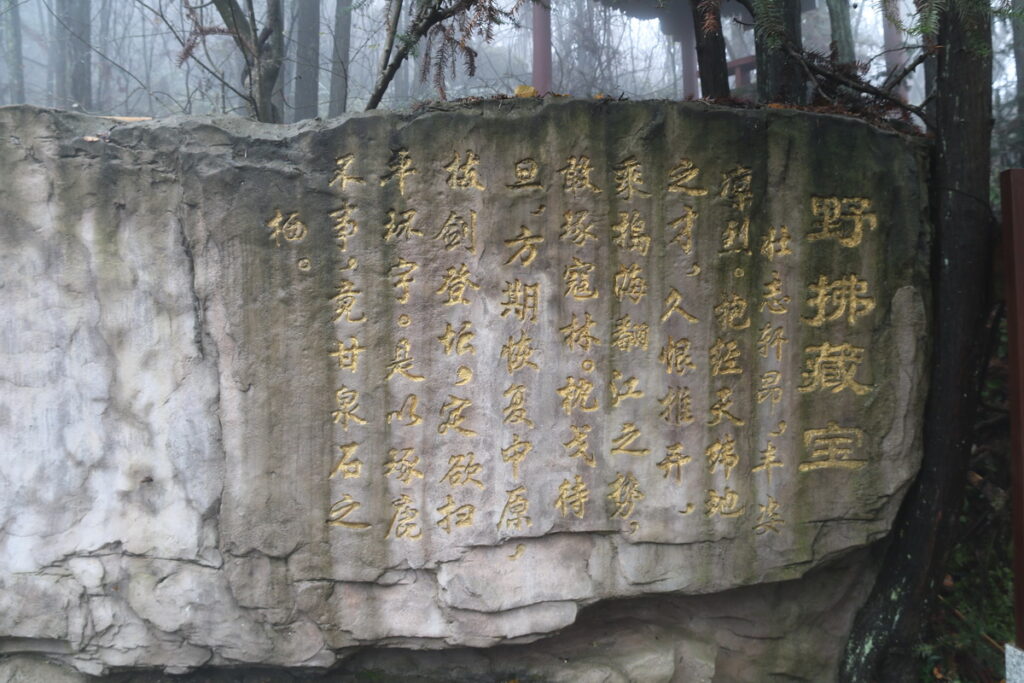 野拂藏宝
壮志轩昂，丰姿
凛烈。抱经天纬地
之才，久恨推开，
乘搗海翻江之势，
敢琢寇林。枕戈待
旦，方期恢复中原，
拔剑登坛，定欲扫
平环宇。是以琢鹿
不事，竟甘泉石之
栖。